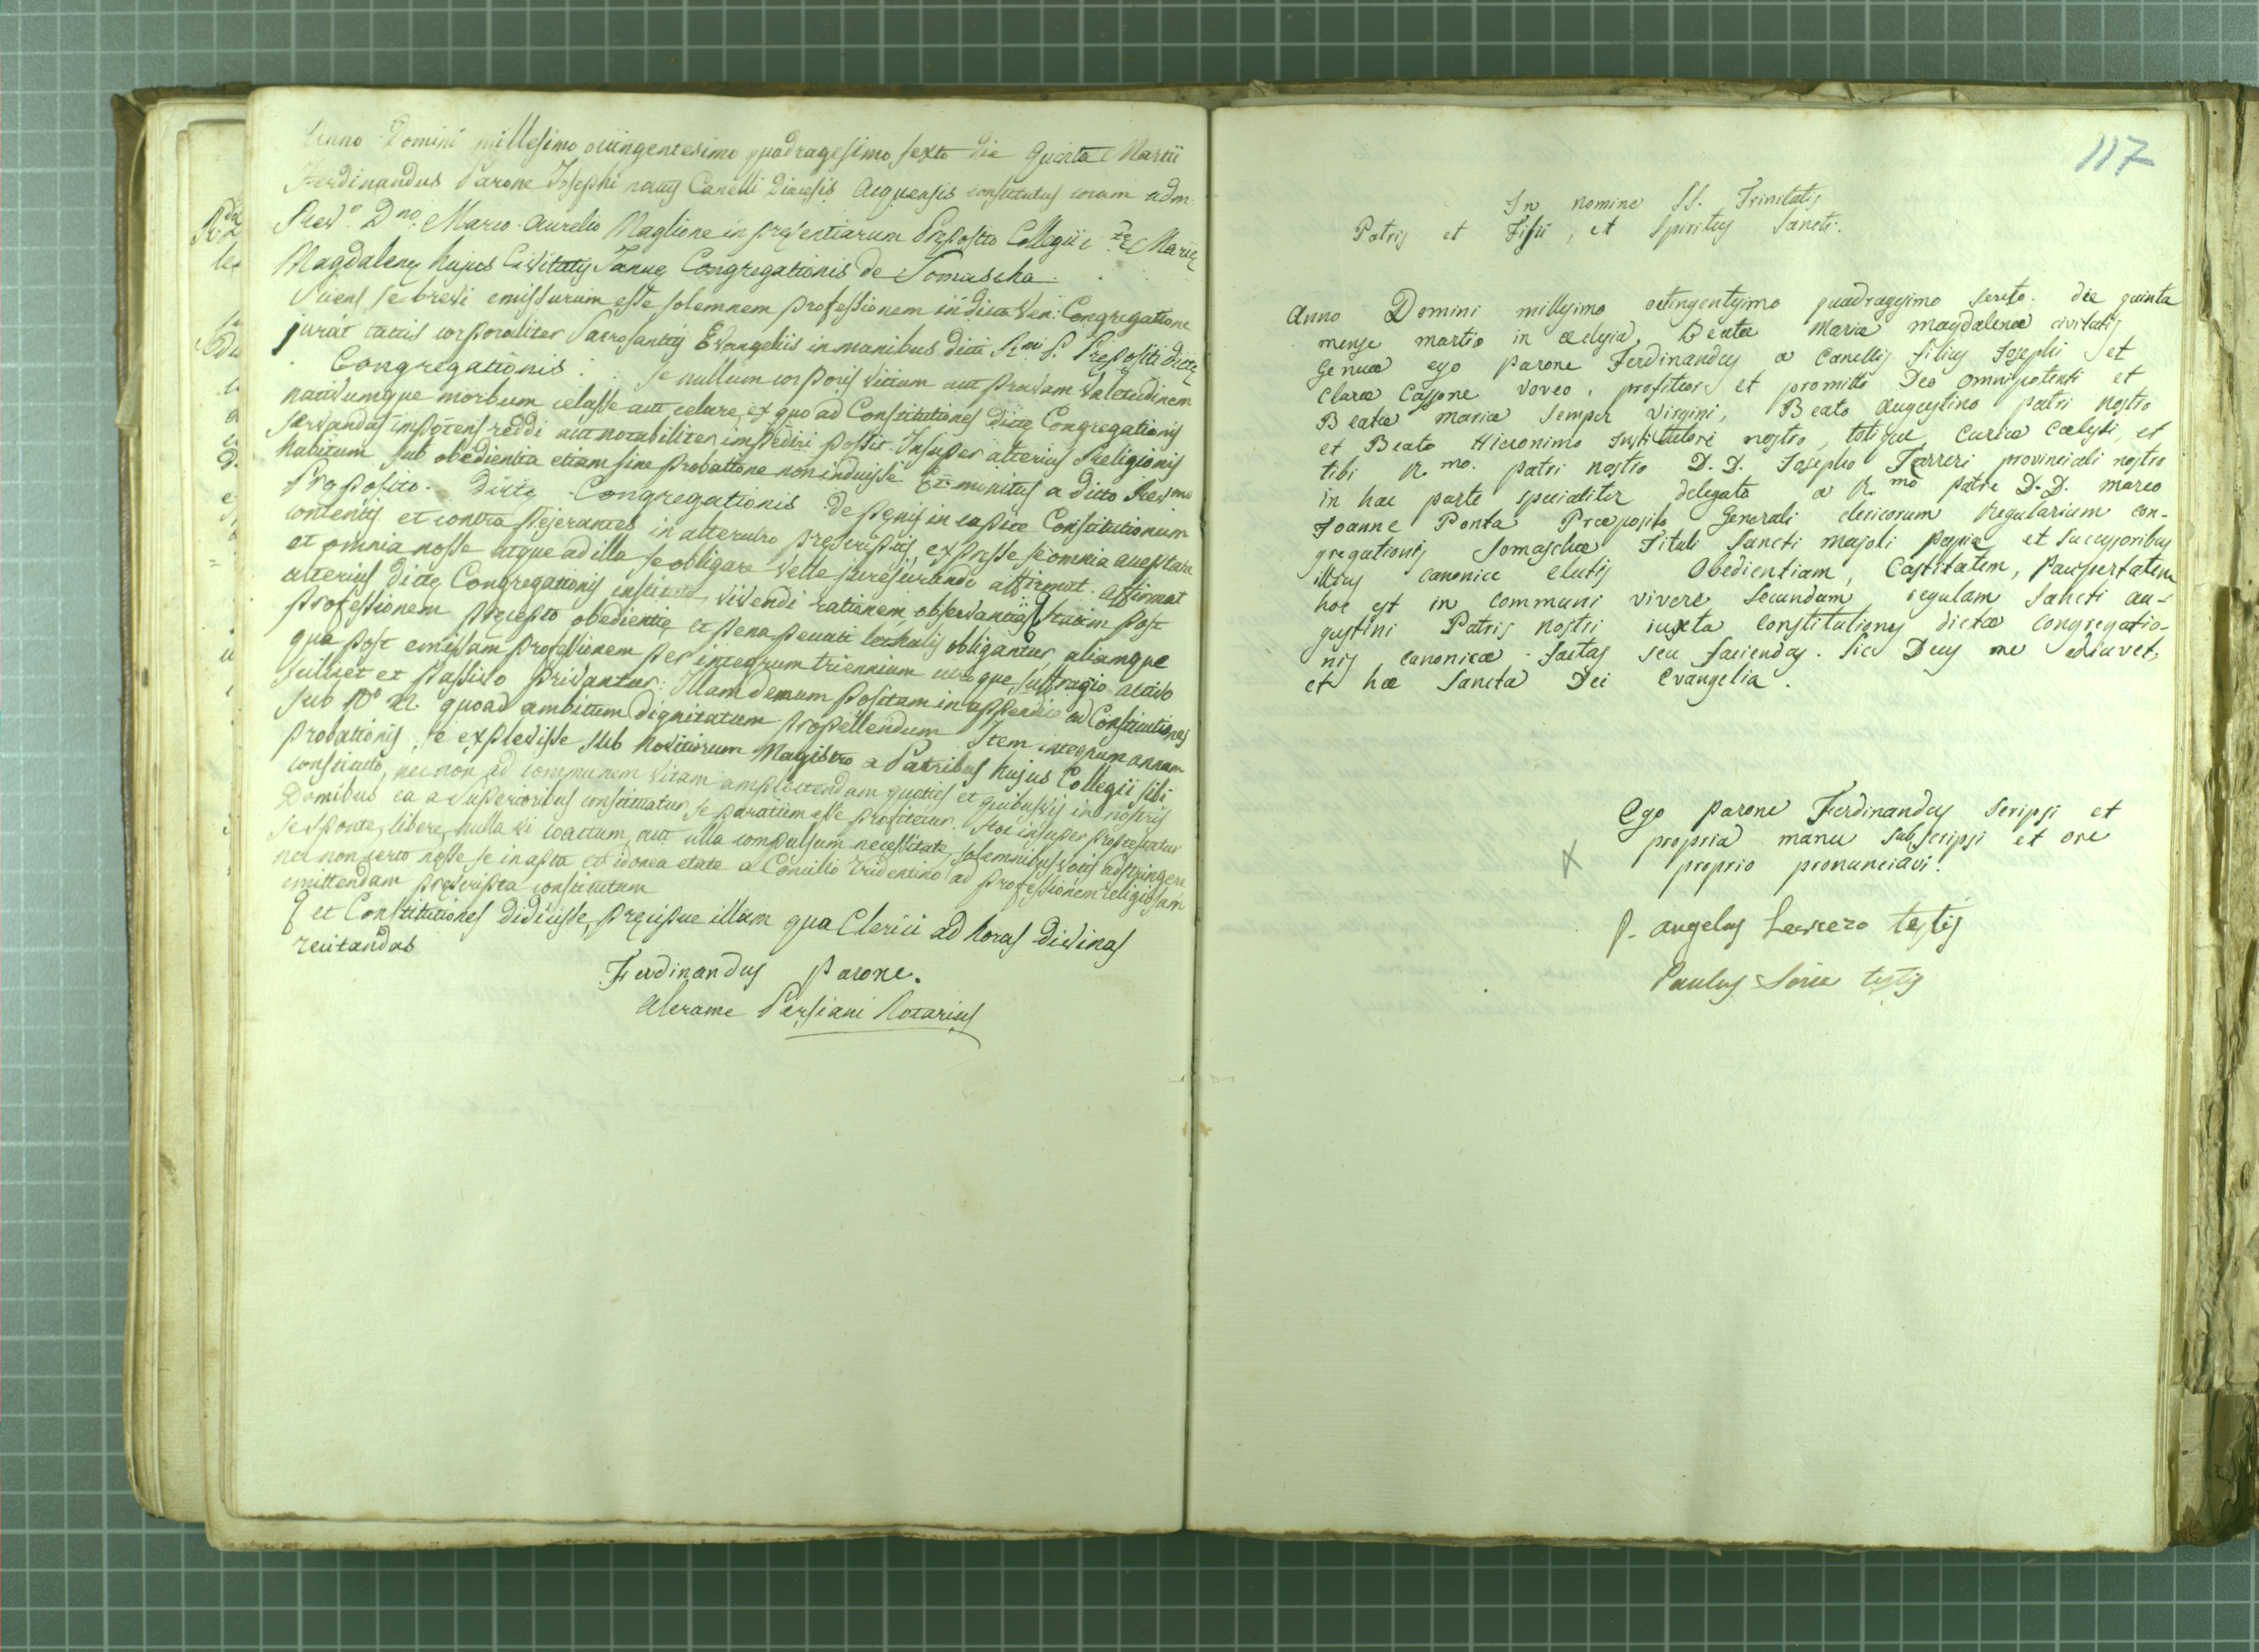 Anno Domini millesimo octingentesimo quadragesimo sexto die quarta Martii
Ferdinandus Parone Josephi natus Canelli Diœcesis Acquensis constitutus coram adm.
Rev.° D.no Marco Aurelio Maglione in presentiarum Preposito Collegii S.tę Marię
Magdalenę hujus Civitatis Januę Congregationis de Somascha
Sciens se brevi emissurum esse solemnem professionem in dicta Ven: Congregatione
jurat tactis corporaliter Sacrosantis Evangeliis in manibus dicti R.mi P. Prępositi dictę
Congregationis: se nullum corporis vitium aut pravam valetudinem
nativumque morbum celasse aut celare, ex quo ad Constitutiones dictę Congregationis
servandas impotens reddi aut notabiliter impediri possit. Insuper alterius Religionis
habitum sub obedientia etiam sine probatione non induisse Et monitus a dicto Rev.mo
Pręposito dictę Congregationis de pęnis in capite Constitutionum
contentis et contra pejerantes in alterutro pręscriptis, expresse se omnia acceptare
et omnia nosse atque ad illa se obligare velle jurejurando affirmat. affirmat
alterius dictę Congregationis instituta, vivendi rationem, observantias statim post
professionem pręcepto obedientię et pena peccati lethalis obligantur, aliamque
qua post emissam professionem per integrum triennium utroque suffragio activo
scilicet et passivo privantur: Illam demum positam in appendice ad Constitutiones
sub N° XI. quoad ambitum dignitatum propellendum Item integrum annum
probationis se explevisse sub Novitiorum Magistro a Patribus hujus Collegii sibi
constituto, nec non ad communem vitam amplectendam quoties et quibusvis in nostris
Domibus ea a Superioribus constituatur se paratum esse profitetur. Hoc insuper protestatur
se sponte, libere, nulla vi coactum, aut ulla compulsum necessitate, solemnibus votis adstringere
nec non certo nosse se in apta et idonea etate a Concilio Tridentino ad professionem religiosam
emittendam pręscripta constitutum
et Constitutiones didicisse, pręcipue illam qua Clerici ad horas divinas
recitandas
Ferdinandus Parone.
Alerame Persiani Notarius
117
In nomine SS. Trinitatis
Patris et Filii, et Spiritus Sancti.
Anno Domini millesimo octingentesimo quadragesimo sexto. die quinta
mense martio in æclesia Beatæ Mariæ magdalenæ civitatis
Genuæ ego Parone Ferdinandus a Canellis filius Josephi et
Claræ Cassone voveo, profiteor et promitto Deo omnipotenti et
Beatæ mariæ semper virgini, Beato Augustino patri nostro
et Beato Hieronimo Institutore nostro, totique Curiæ Cælesti, et
tibi R.mo patri nostro D. D. Josepho Ferreri provinciali nostro
in hac parte specialiter delegato a R.mo patre D. D. marco
Joanne Ponta Præposito Generali clericorum Regularium con-
gregationis Somaschæ Tituli Sancti majoli papiæ, et successoribus
illius canonice electis Obedientiam, Castitatem, Paupertatem
hoc est in communi vivere secundum regulam Sancti au-
gustini Patris nostri iuxta constitutiones dictæ congregatio-
nis canonicæ factas seu faciendas. Sic Deus me adiuvet,
et hæ Sancta Dei Evangelia.
Ego Parone Ferdinandus scripsi et
propria manu subscripsi et ore
proprio pronunciavi.
X
P. Angelus testis
Paulus testis